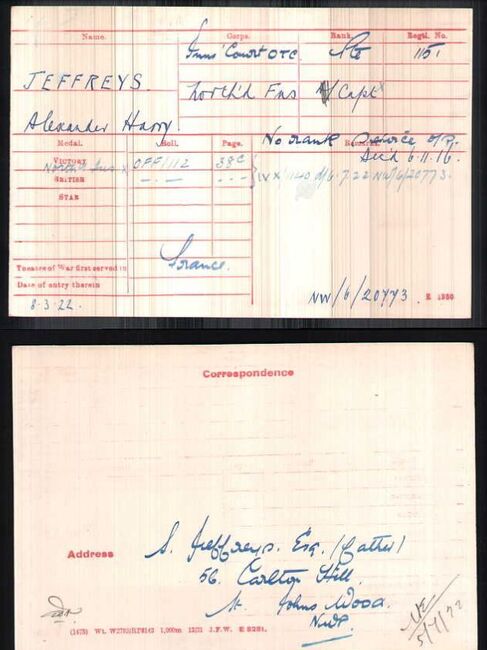 Name. Corps. Rank. Regtl. No.
Inns' Court OTC Pte 1151
JEFFREYS.
North'd Fus A/Capt x
Alexander Harry.
No rank Service O/R.
Medal. Roll. Page. Remarks.
Died 6.11.16.
VICTORY OFF/112 38C
North'd Fus x
BRITISH —.— - - - IV X /1140 d/6.7.22 NW/6/20773.
STAR
France.
Theatre of War first served in
Date of entry therein
8.3.22. NW/6/20773. E 1380
Correspondence
Address
S. Jeffreys. Esq. (father)
56. Carlton Hill.
St. Johns Wood.
NW8.
5/7/22
1,000m 12/21 J.F.W. E 8281.